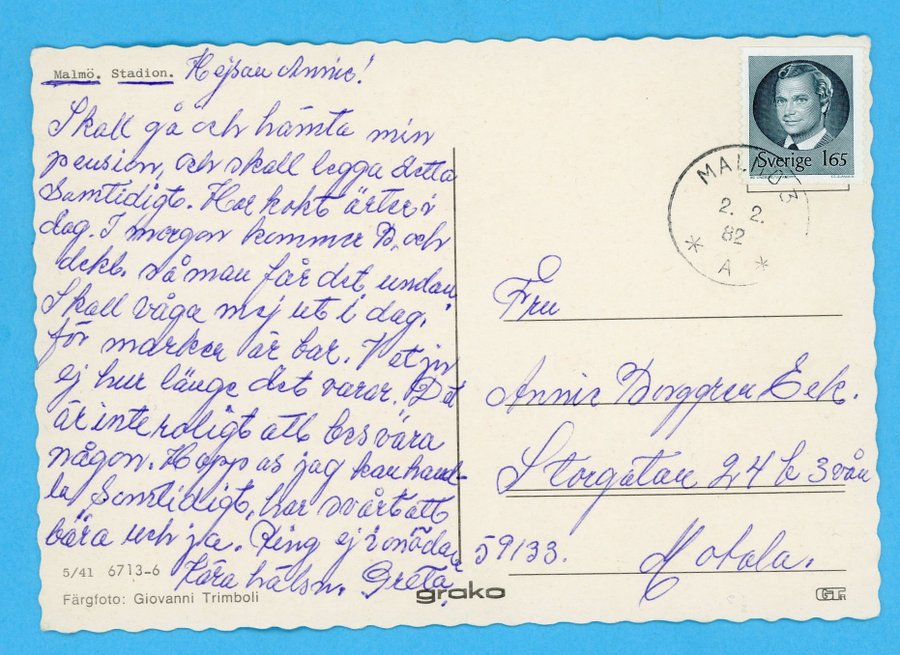 Malmö. Stadion. Hejsan Annie!
Skall gå och hämta min
pension, och skall legga detta
Samtidigt. Har kokt ärter i
dag. I morgon kommer D, och
dekl. så man får det undan
Skall våga mej ut i dag,
för marken är bar. Vet ju
ej hur länge det varar. Det
är inte roligt att besvära
någon. Hoppas jag kan hand-
la Samtidigt, har svårt att
bära uch ja. Ring ej i onödan
Kära hälsn. Greta.
5/41 6713-6
Färgfoto: Giovanni Trimboli
grako
Sverige 165
MALMÖ 3
2. 2.
82
* A *
Fru
Annie Borggren Eek.
Storgatan 24 b 3 vån
59133. Motala.
GTR